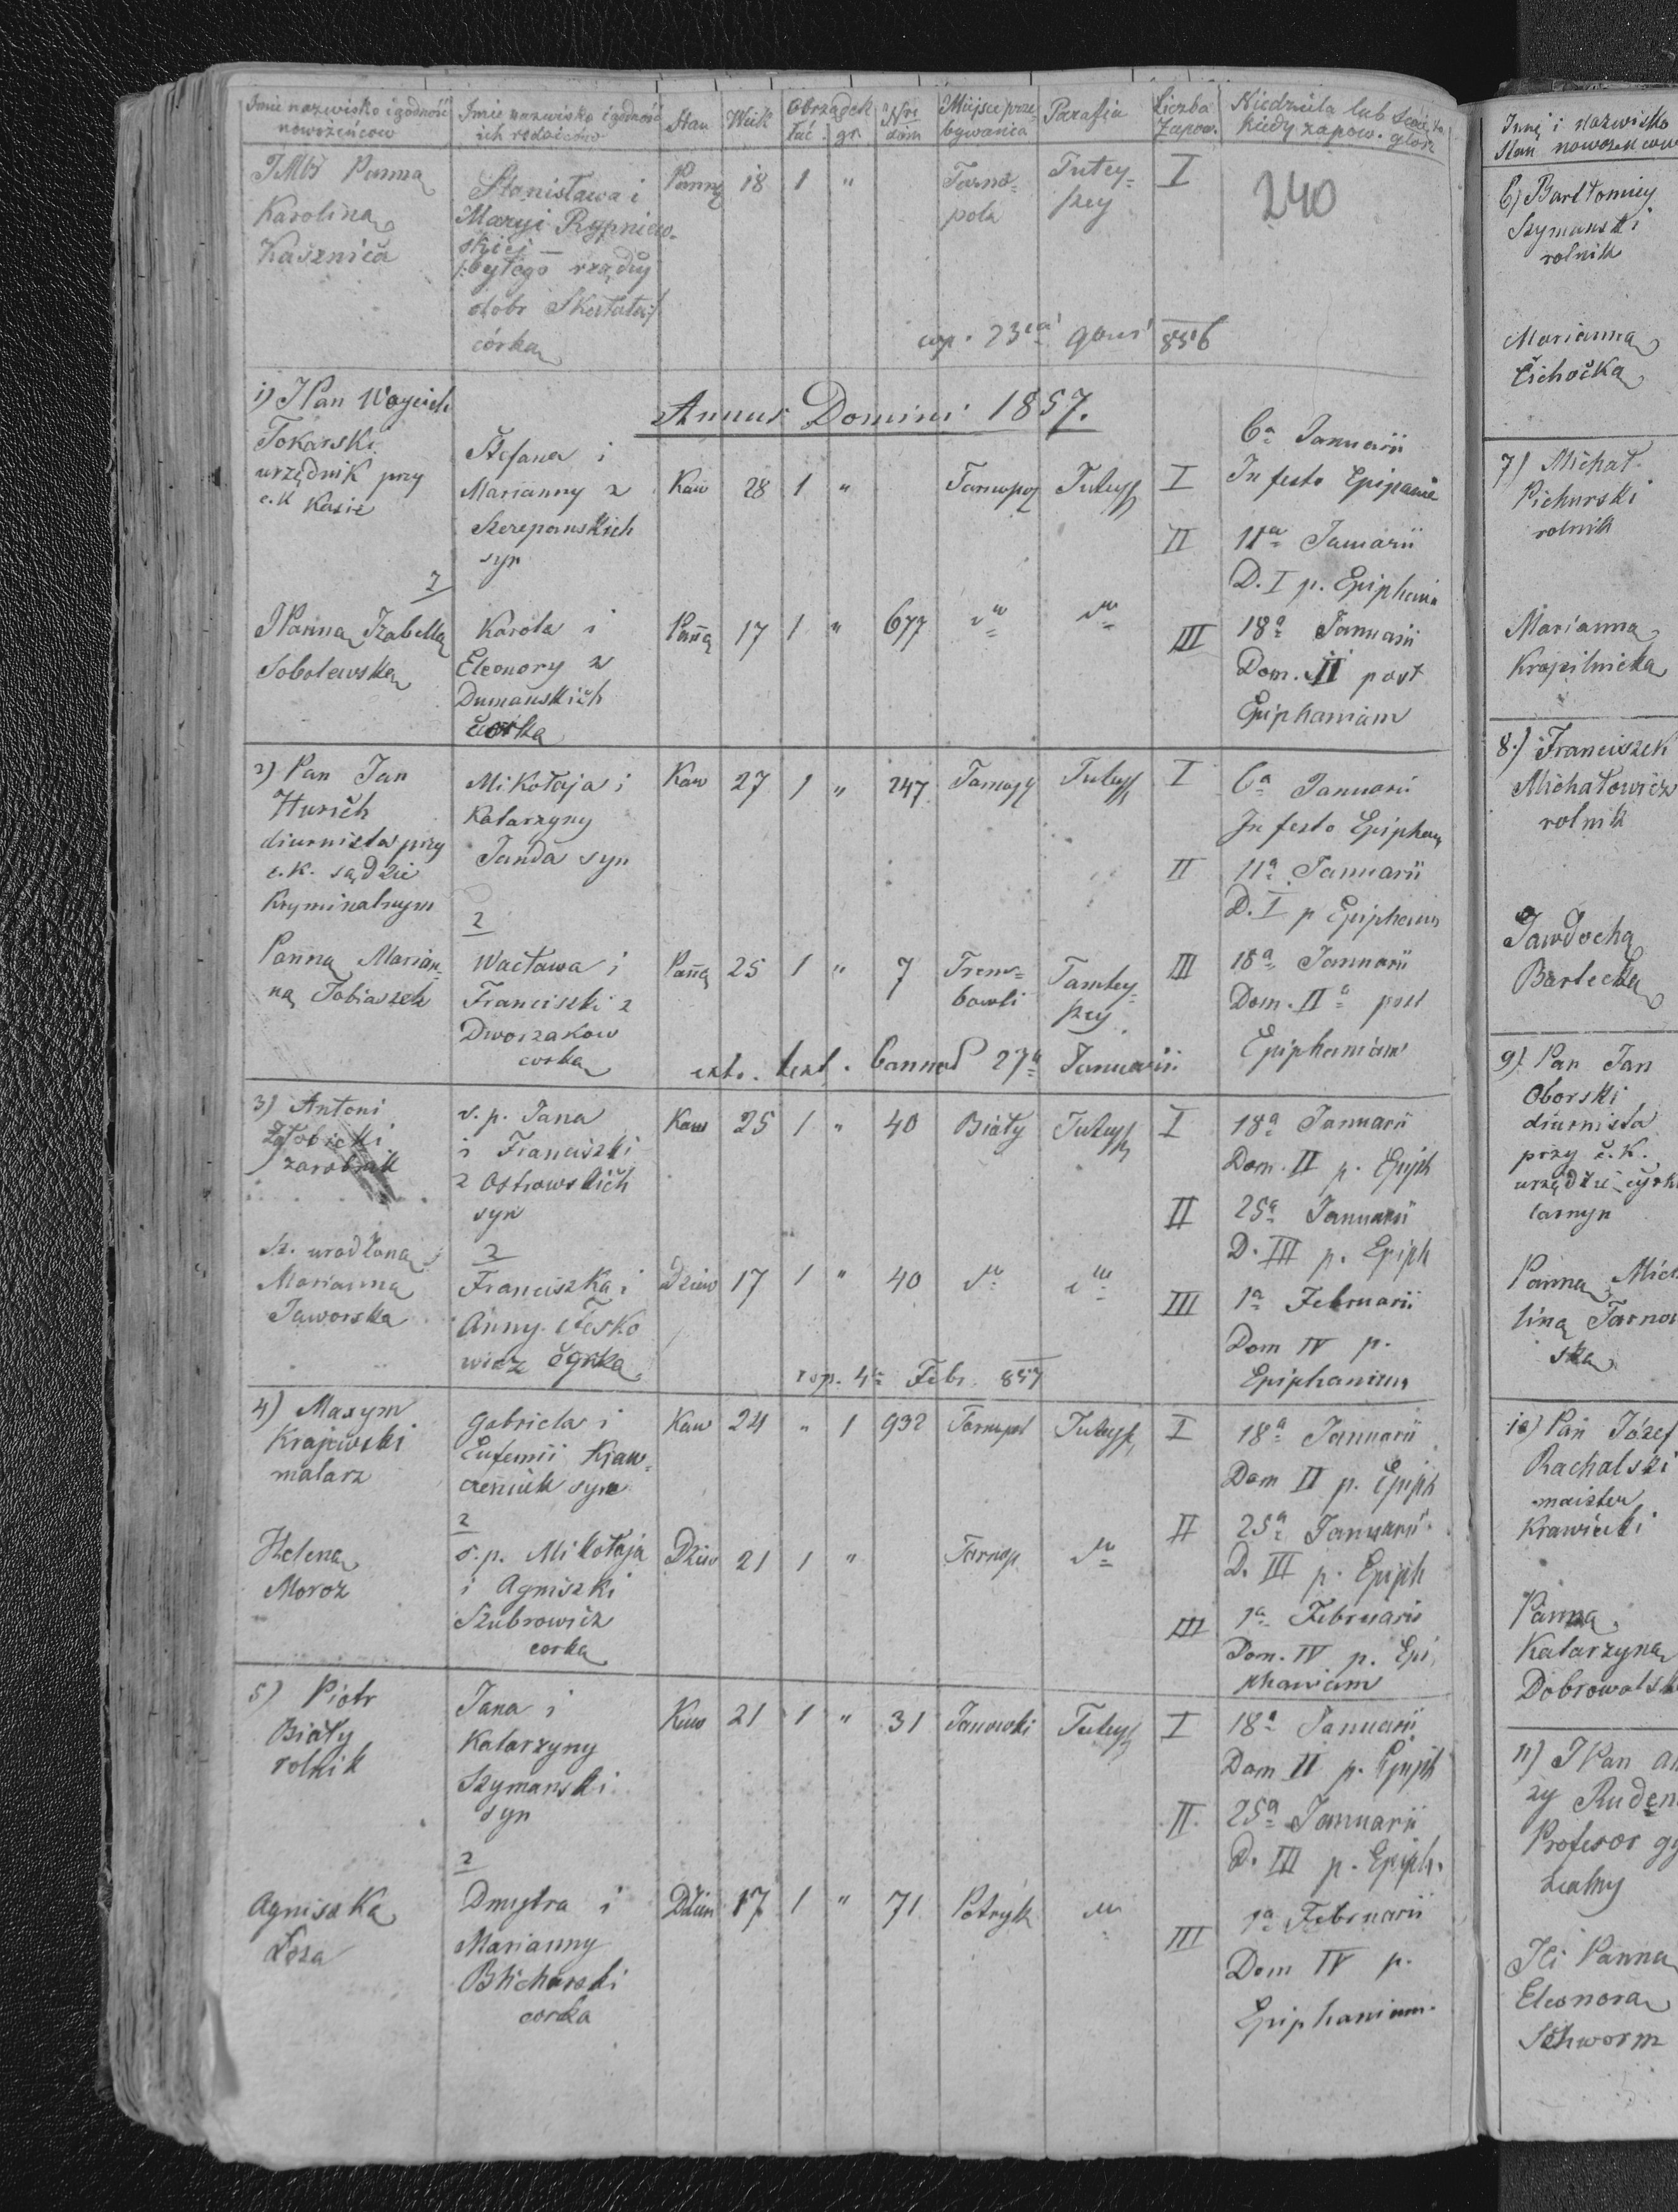 Imie nazwisko i godność nowożeńcow | Imie nazwisko i godność ich rodziców | Stan | Wiek | Obrządek łać. gr. | Nro dom | Miejsce prze-bywania | Parafia | Liczba Zapow. | Niedziela lub święta kiedy zapow. głosz
JMść Panna
Karolina
Kasznica
Stanisława i
Maryi Rypniew-
skiej
byłego rządcy
dobr Skałatu
córka
Panny 18 1 " Tarno-
pola
Tutey-
szey
I
240
cop. 23cia 9bris 856
Annus Domini 1857.
1) JPan Woyciech
Tokarski
urzędnik przy
c.k Kasie
Stefana i
Marianny z
Szczepanskich
syn
Kaw 28 1 " Tarnopol Tuteysz
I 6a Januarii
In festo Epipanie
II 11a Januarii
D. I p. Epiphania
z
JPanna Izabella
Sobolewska
Karola i
Eleonory z
Dumanskich
corka
Panna 17 1 " 677
III 18a Januarii
Dom. II post
Epiphaniam
2) Pan Jan
Hurich
diurnista przy
c.k. sądzie
Kryminalnym
Mikołaja i
Katarzyny
Janda syn
Kaw 27 1 " 247 Tarnopol Tuteysz
I 6a Januarii
In festo Epiphan
II 11a Januarii
D. I p Epiphania
z
Panna Marian-
na Tobiaszek
Wacława i
Franciszki z
Dworzakow
corka
Panna 25 1 " 7 Trem-
bowli
Tamtey-
szey
III 18a Januarii
Dom. IIa post
Epiphaniam
ext. test. bannor 27a Januarii
3) Antoni
zarobnik
ś. p. Jana
i Franciszki
z Ostrowskich
syn
Kaw 25 1 " 40 Biały Tuteysz
I 18a Januarii
Dom. II p. Epiph
II 25a Januarii
D. III p. Epiph
z
Sz. urodzona
Marianna
Jaworska
Franciszka i
Anny Fesko
wicz córka
Dziew 17 1 " 40
III 1a Februarii
Dom IV p.
Epiphanium
cop. 4a Febr. 857
4) Maxym
Krajewski
malarz
Gabriela i
Eufemii Kraw-
czeniuk syn
Kaw 24 " 1 932 Tarnopol Tuteysz
I 18a Januarii
Dom II p. Epiph
z
Helena
Moroz
ś. p. Mikołaja
i Agniszki
Szubrowicz
corka
Dziew 21 1 " Tarnop
II 25a Januarii
D. III p. Epiph
III 1a Februarii
Dom. IV p. Epi
phaniam
5) Piotr
Biały
rolnik
Jana i
Katarzyny
Szymanski
syn
Kaw 21 1 " 31 Janowki Tuteysz
I 18a Januarii
Dom II p. Epiph
II 25a Januarii
D. III p. Epiph.
z
Agniszka
Łoza
Dmytra i
Marianny
Blicharski
corka
Dziew 17 1 " 71 Petryk
III 1a Februarii
Dom IV p.
Epiphanium.
Imię i nazwisko
Stan nowożeńcow
6) Bartłomiey
Szymanski
rolnik
Marianna
Cichocka
7) Michał
Pichurski
rolnik
Marianna
Kropilnicka
8.) Franciszek
Michałowicz
rolnik
Jawdocha
Bartecka
9) Pan Jan
Oborski
diurnista
przy c.k.
urzędzie cyrk
larnyn
Panna Mich
lina Tarnow
ska
10) Pan Józef
Rachalski
maister
Krawiecki
Panna
Katarzyna
Dobrowolsk
11) JPan An
zy Ruden
Profesor gy
zealny
Jei Panna
Eleonora
Schworm